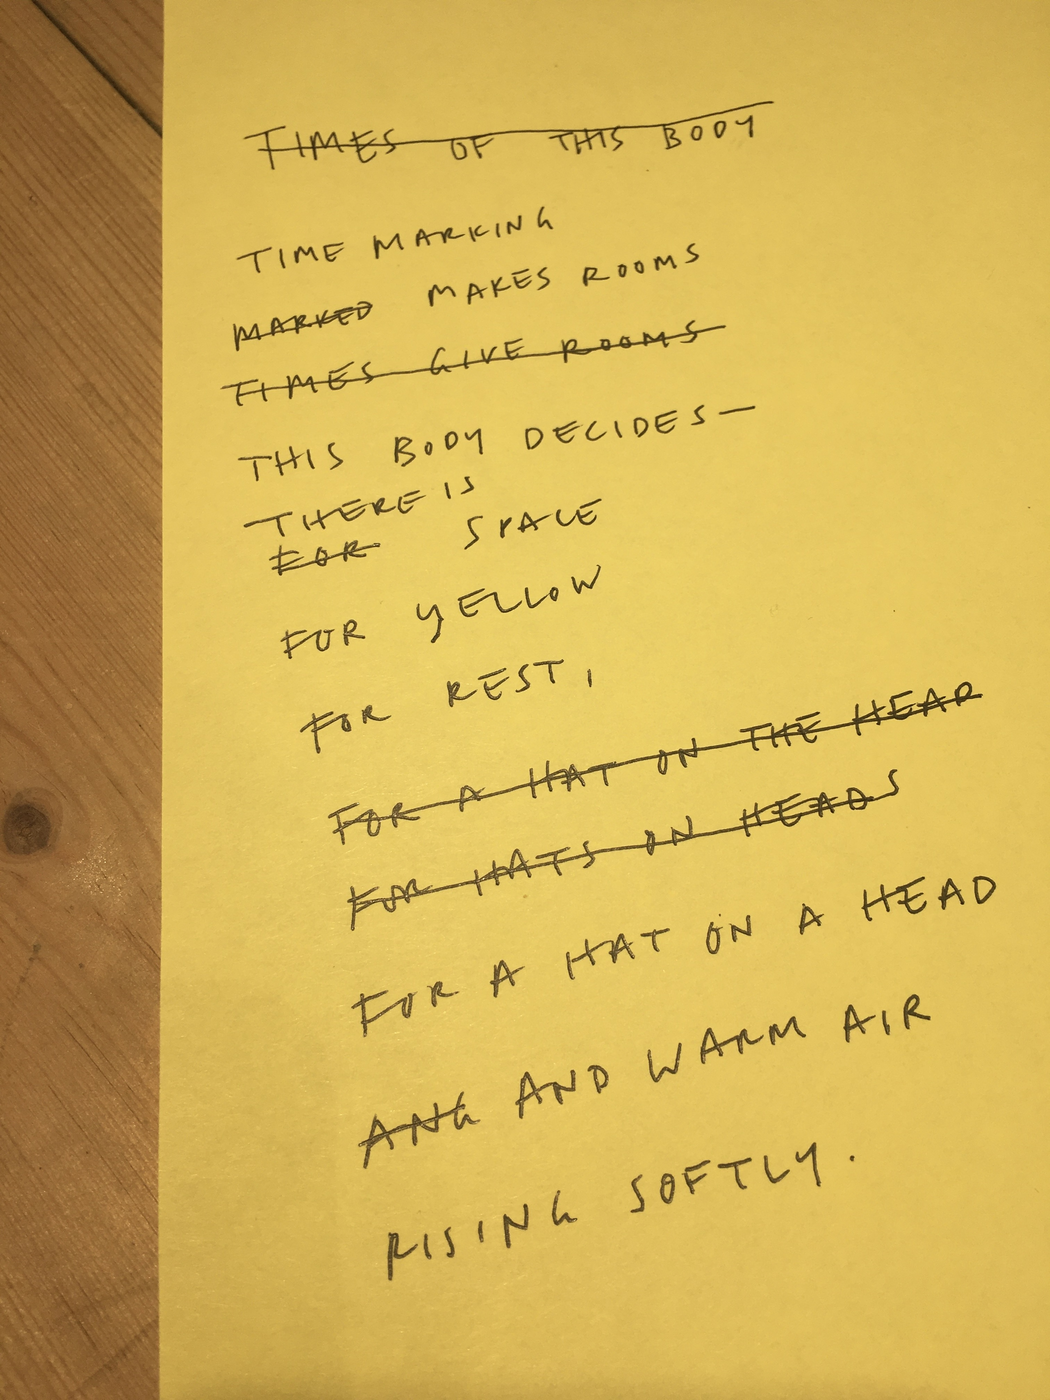 TIMES OF THIS BODY
TIME MARKING
MARKED MAKES ROOMS
TIMES GIVE ROOMS
THIS BODY DECIDES—
THERE IS
FOR SPACE
FOR YELLOW
FOR REST,
FOR A HAT ON THE HEAR
FOR HATS ON HEADS
FOR A HAT ON A HEAD
ANG AND WARM AIR
RISING SOFTLY.